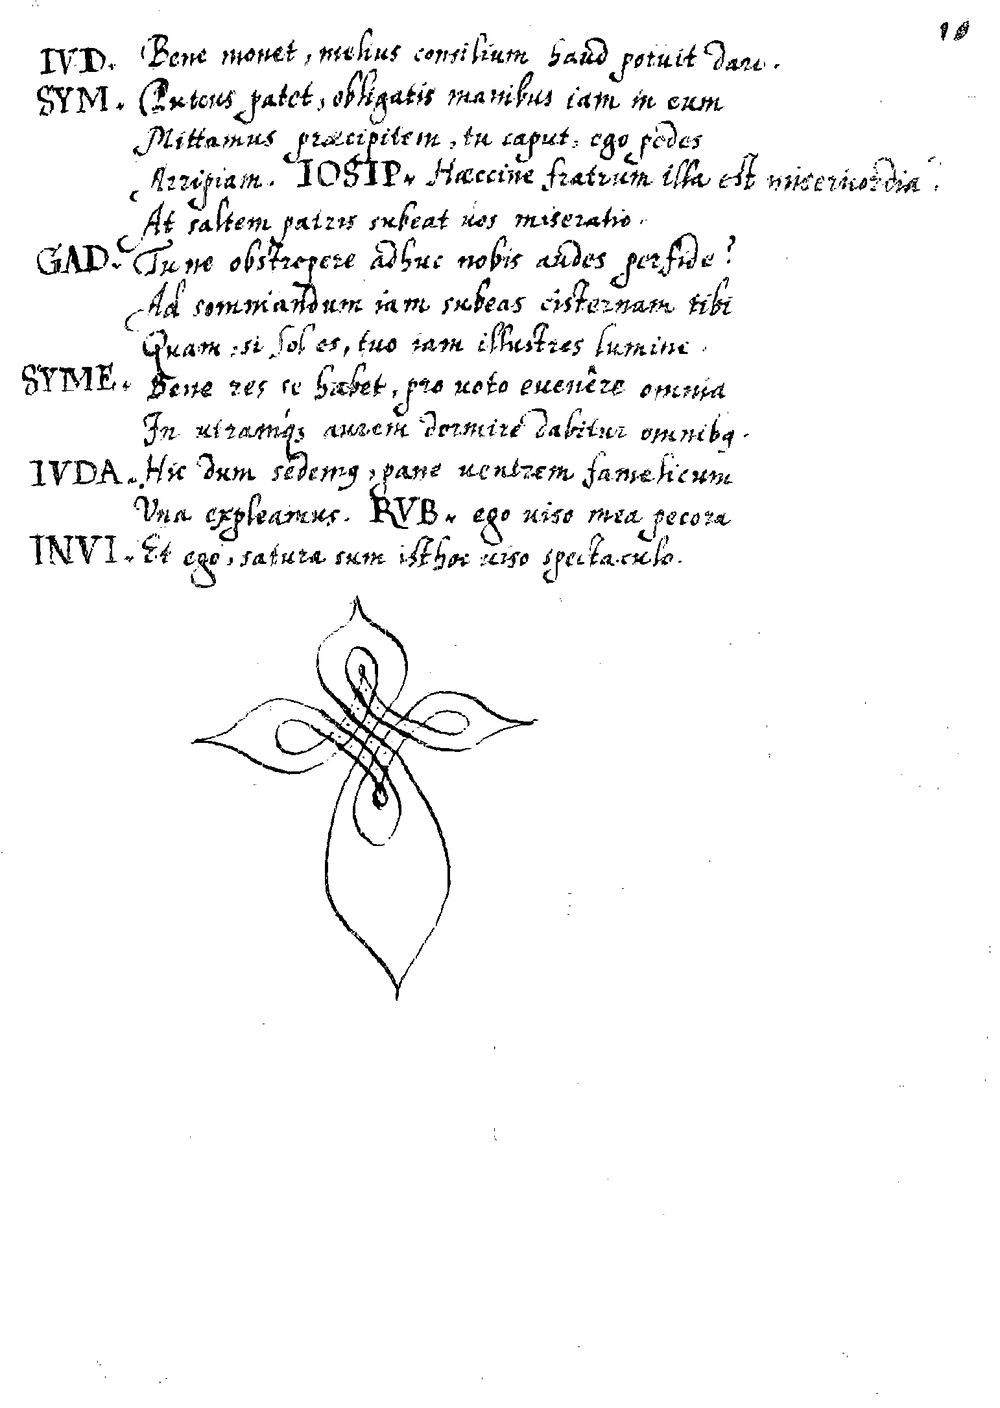 10
IVD. Bene monet, melius consilium haud potuit dari.
SYM. Puteus patet, obligatis manibus iam in eum
Mittamus præcipitem, tu caput, ego pedes
Arripiam. IOSIP. Hæccine fratrum illa est misericordia?
At saltem patris subeat uos miseratio.
GAD. Tu ne obstrepere adhuc nobis audes perfide?
Ad somniandum iam subeas cisternam tibi
Quam, si Sol es, tuo iam illustres lumine.
SYME. Bene res se habet, pro uoto euenêre omnia
In utramq́; aurem dormire dabitur omnibq.
IVDA. Hic dum sedemq, pane uentrem famelicum
Vna expleamus. RVB. ego uiso mea pecora
INVI. Et ego, satura sum isthoc uiso spectaculo.